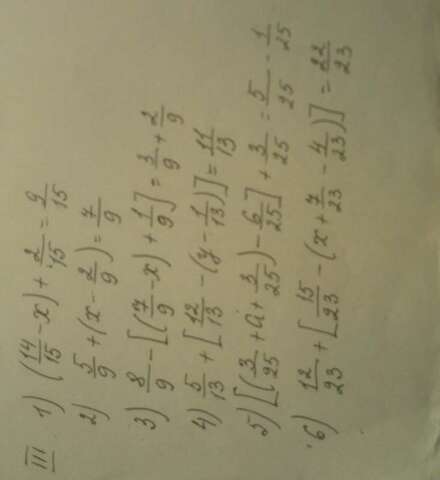 III
1) (14/15 - x) + 2/15 = 9/15
2) 5/9 + (x - 2/9) = 7/9
3) 8/9 - [(7/9 - x) + 1/9] = 3/9 + 2/9
4) 5/13 + [12/13 - (y - 1/13)] = 11/13
5) [(3/25 + a + 3/25) - 6/25] + 3/25 = 5/25 - 1/25
6) 12/23 + [15/23 - (x + 7/23 - 4/23)] = 22/23